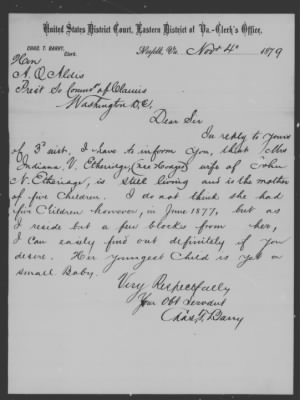 United States District Court, Eastern District of Va.-Clerk's Office,
CHAS. T. BARRY,
Clerk.
Norfolk, Va. Novr 4th 1879
Hon
A. O. Aldis
Prest So Commrs of Claims
Washington D.C.
Dear Sir
In reply to yours
of 3d inst, I have to inform you, that Mrs
Indiana V. Etheridge, (nee wife of John
N. Etheridge, is still living and is the mother
of five Children. I do not think she had
five Children however, in June 1877, but as
I reside but a few blocks from her,
I can easily find out definitely if you
desire. Her youngest Child is yet a
small Baby.
Very Respectfully
Your Obt Servant
Chas. T. Barry